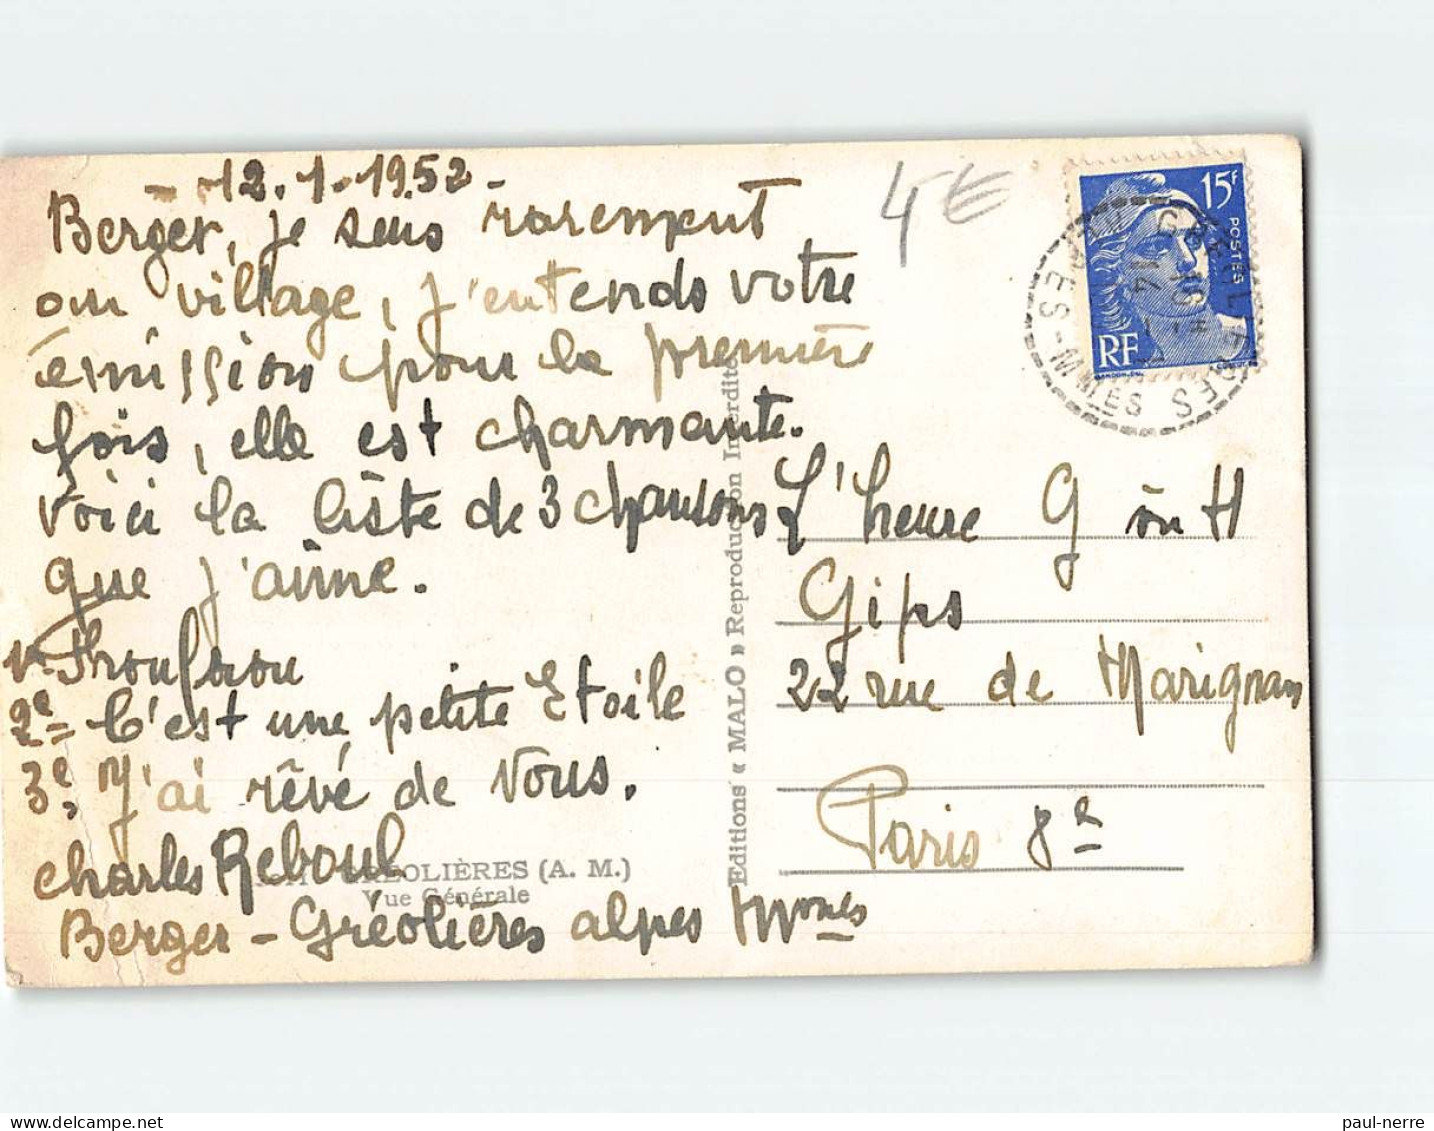 - 12.1.1952 -
Berger, je suis rarement
au village, j'entends votre
émission pour la première
fois, elle est charmante.
Voici la liste de 3 chansons
que j'aime.
1er Froufrou
2e = C'est une petite Etoile
3e, J'ai rêvé de Vous.
Charles Reboul
GRÉOLIÈRES (A. M.)
Vue Générale
Berger - Gréolières alpes Mmes
Editions « MALO » Reproduction Interdite
4 €
15F
POSTES
RF
L'heure G ou H
Gips
22 rue de Marignan
Paris 8e
paul-nerre